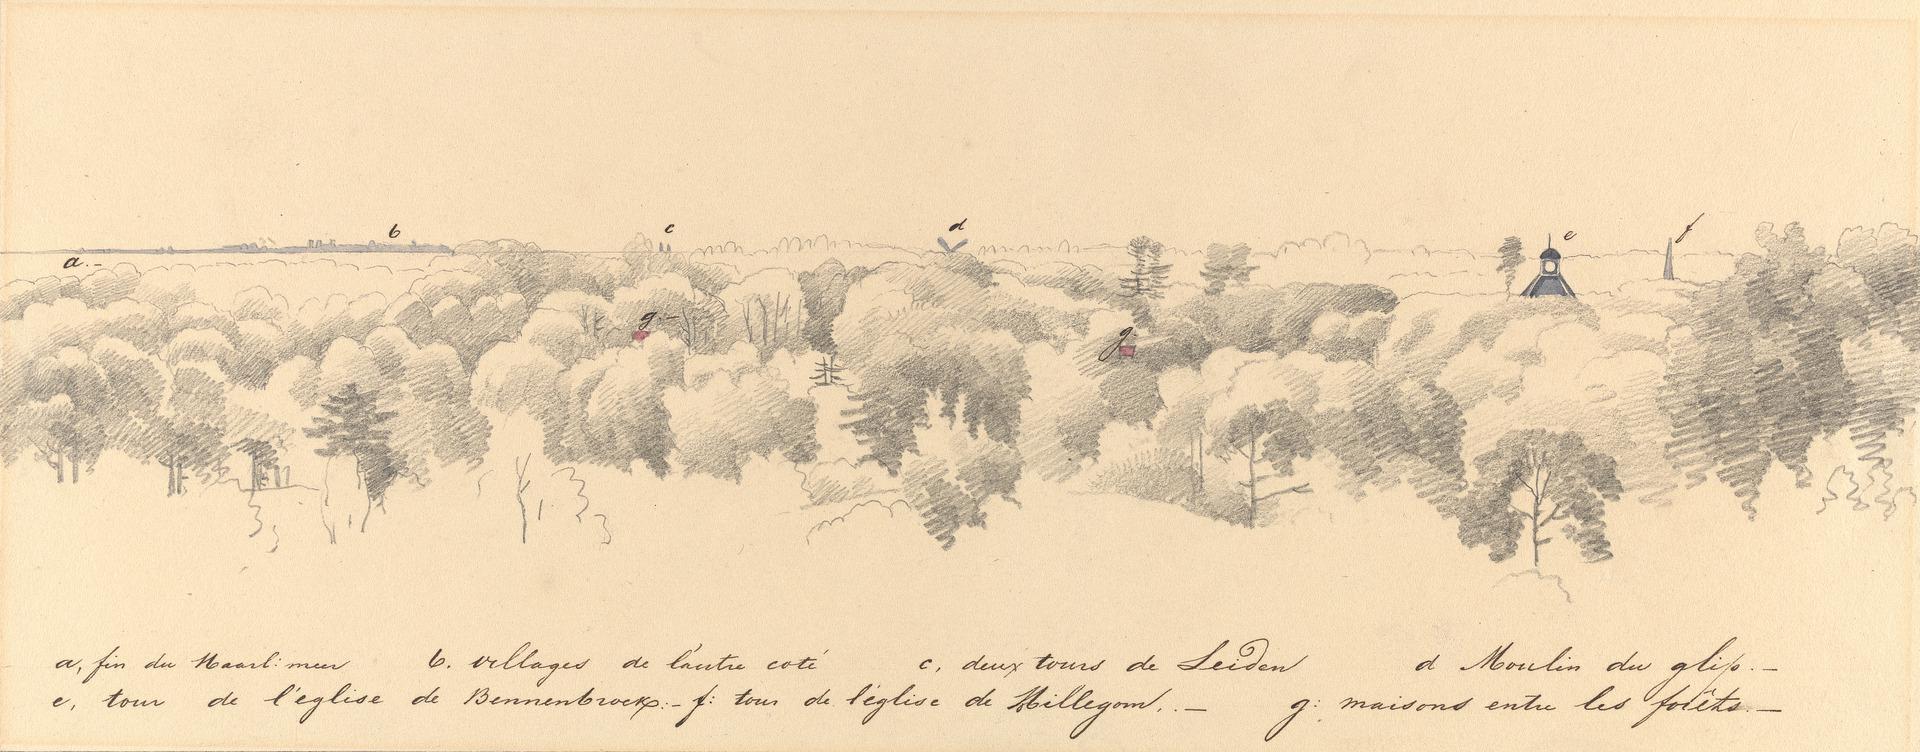 b
c
d
e
f
a.-
g.-
g.
a, fin du Haarl: meer b. villages de l'autre coté c, deux tours de Leiden d Moulin du glip.-
e, tour de l'eglise de Bennenbroek:- f: tour de l'église de Hillegom,.- g: maisons entre les forêts.-